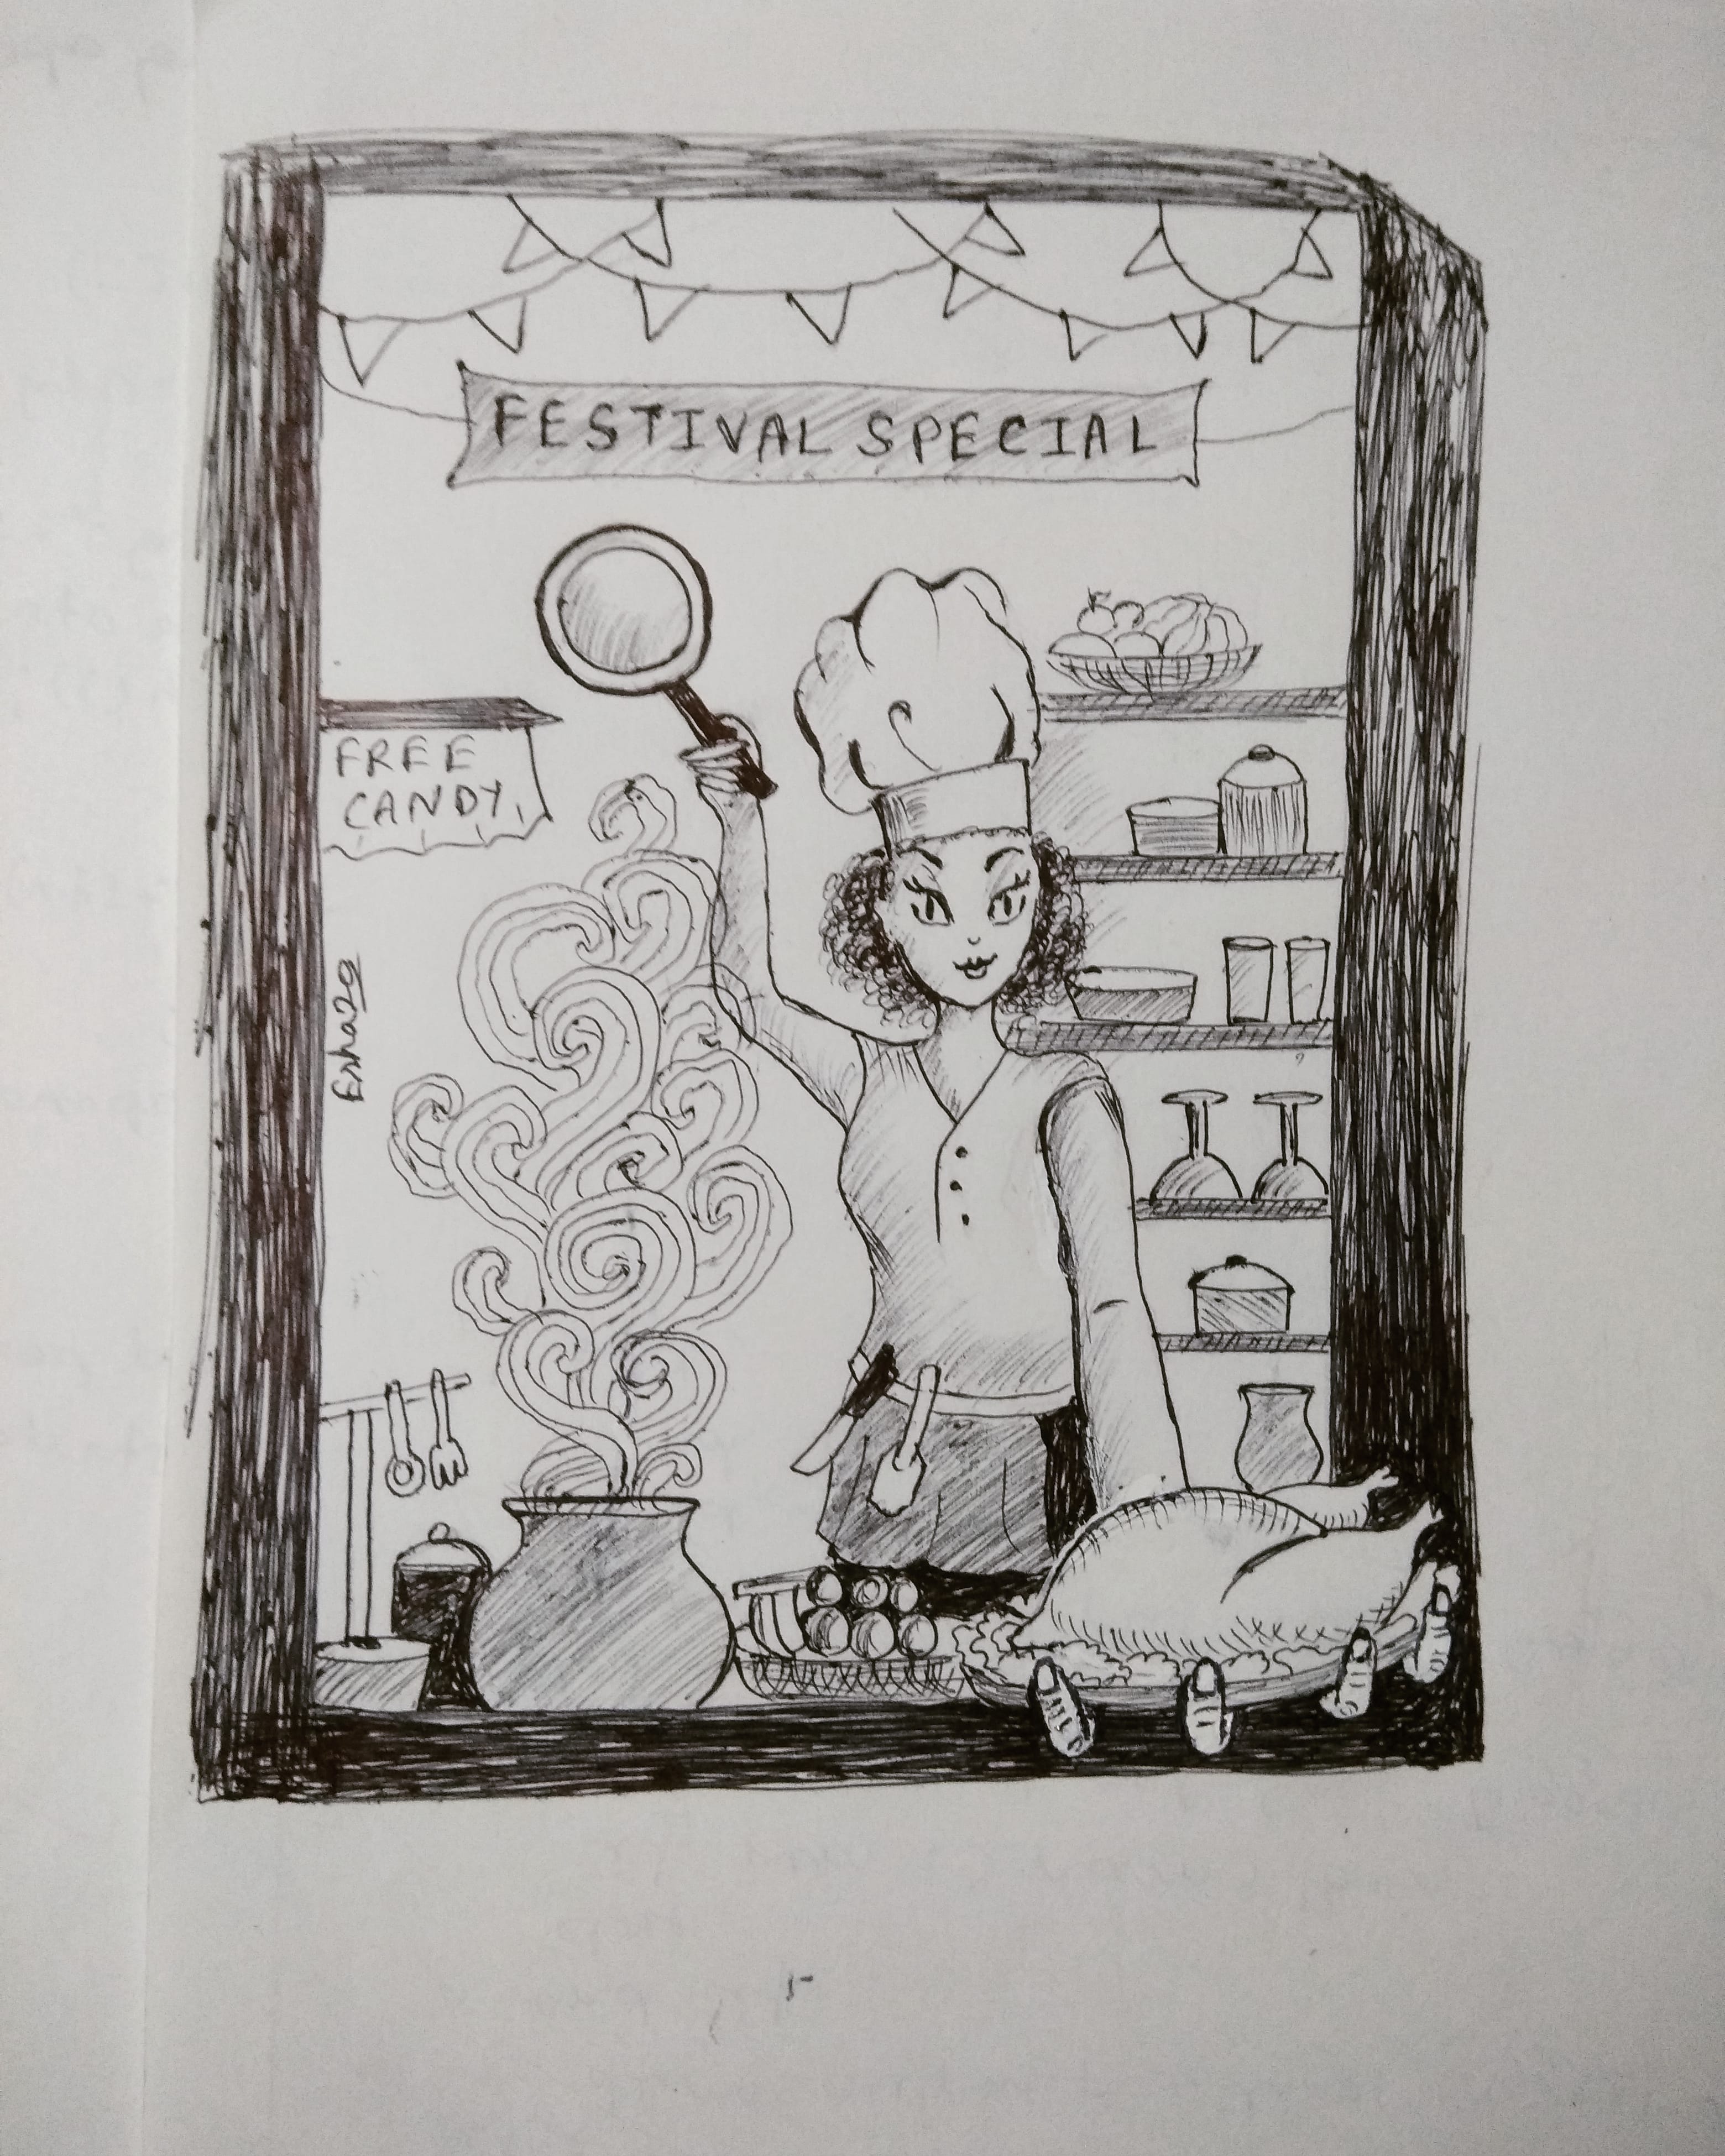 FESTIVAL SPECIAL
FREE
CANDY
Esha20